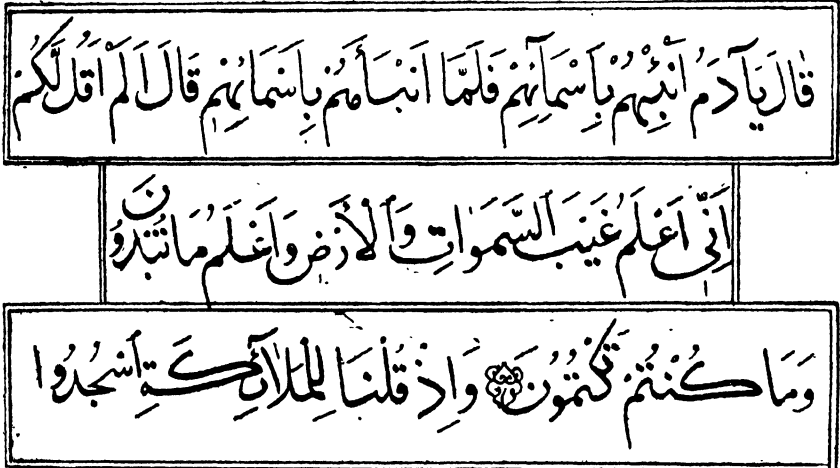 قَالَ يَآ اٰدَمُ اَنْبِئْهُمْ بِاَسْمَآئِهِمْ فَلَمَّا اَنْبَأَهُمْ بِاَسْمَائِهِمْ قَالَ اَلَمْ اَقُلْ لَكُمْ
اِنِّى اَعْلَمُ غَيْبَ السَّمَوَاتِ وَالْأَرْضِ وَاَعْلَمُ مَا تُبْدُونَ
وَمَا كُنْتُمْ تَكْتُمُونَ وَاِذْ قُلْنَا لِلْمَلَائِكَةِ اسْجُدُوا